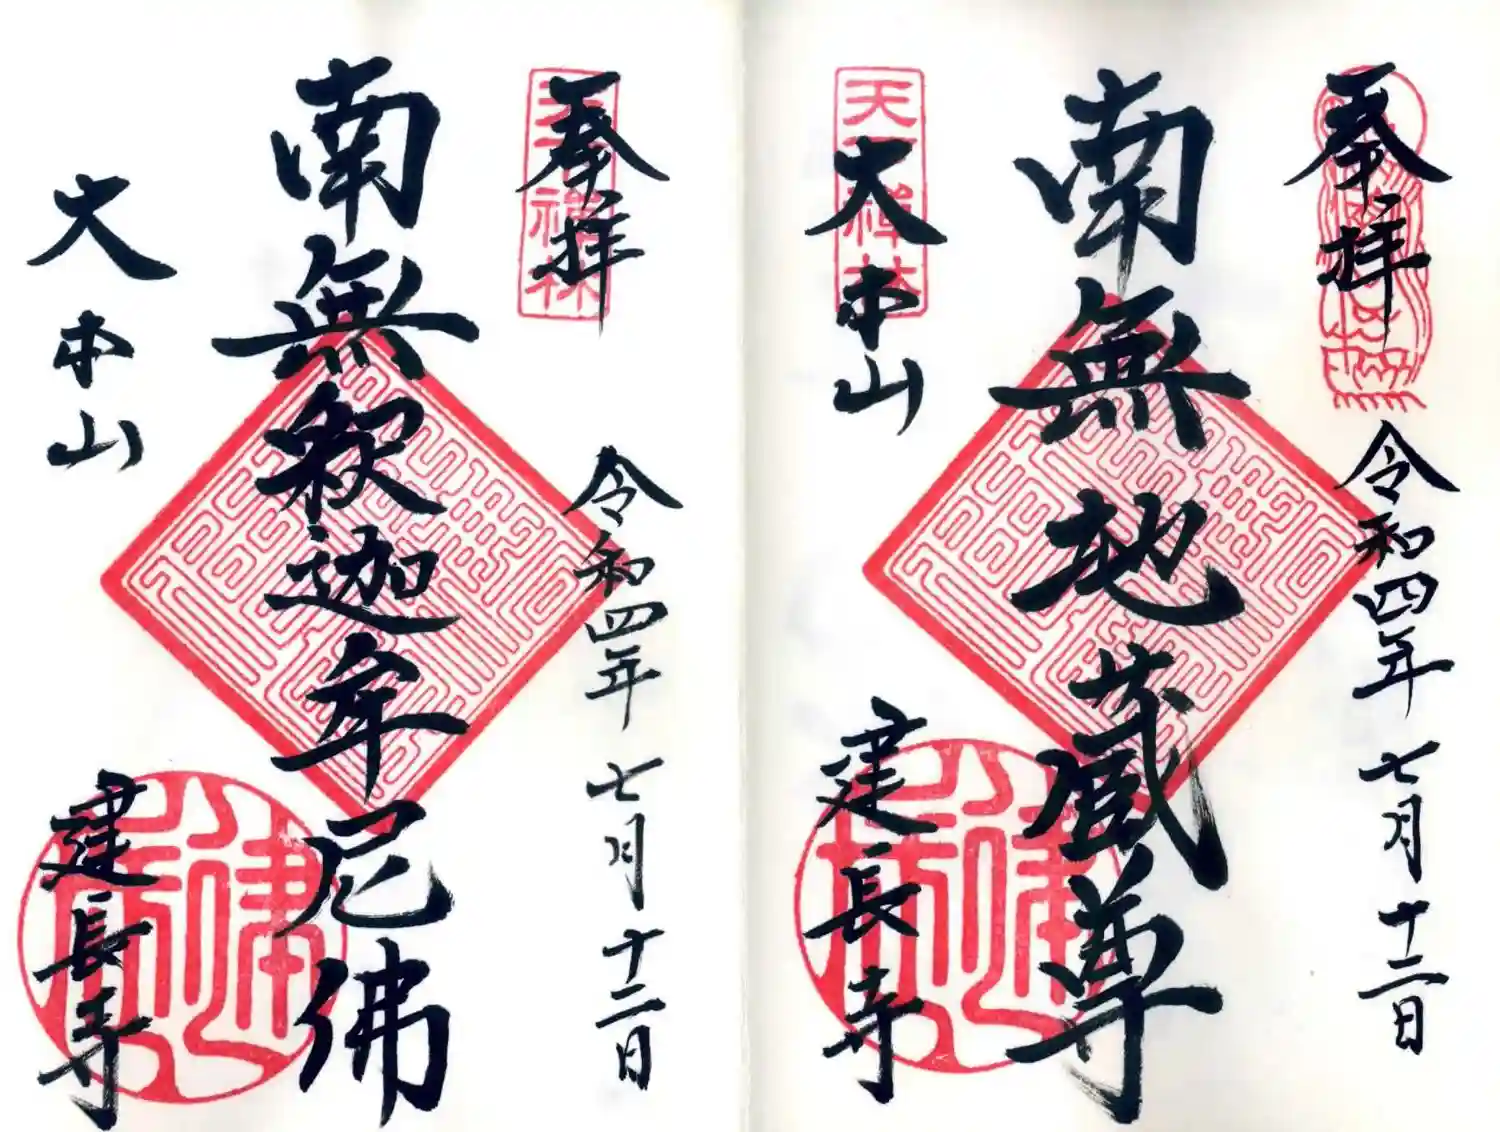 奉拝
令和四年七月十二日
南無地蔵尊
大本山
建長寺
天下禅林
奉拝
令和四年七月十二日
南無釈迦牟尼佛
大本山
建長寺
天下禅林